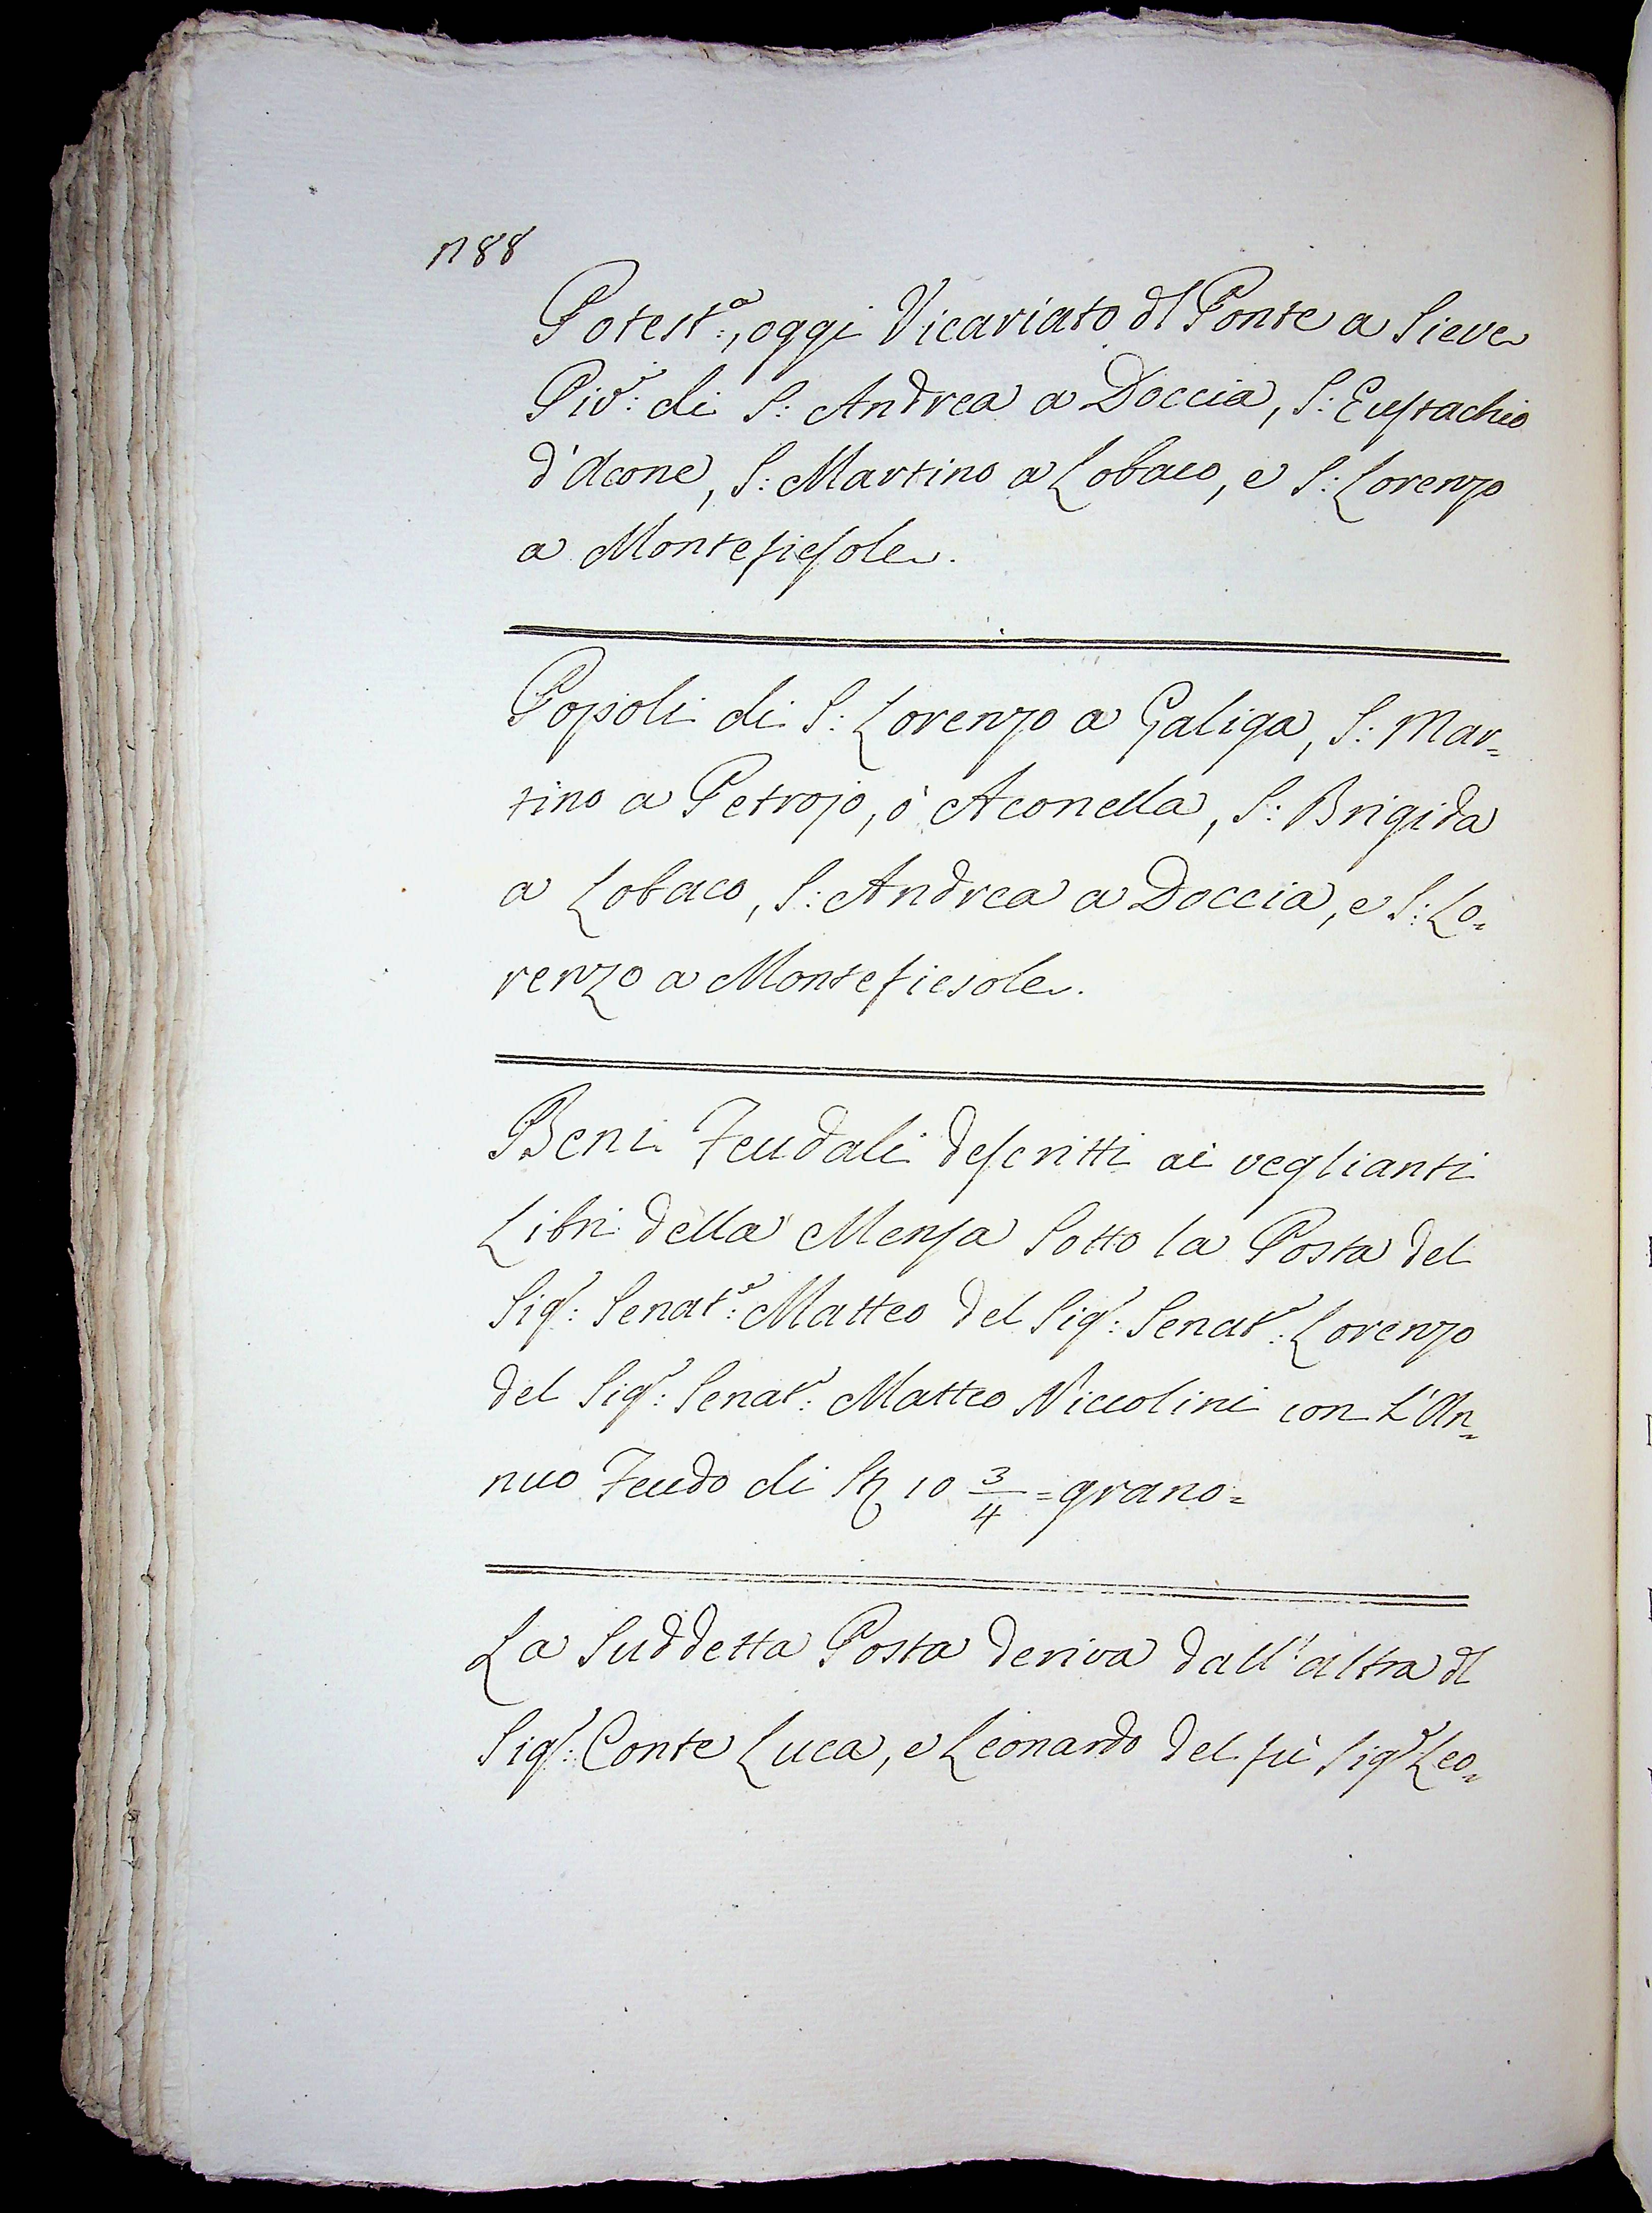 n 88
Potest.ª, oggi Vicariato dl Ponte a Sieve
Piv.ᵉ: di S: Andrea a Doccia, S: Eustachio
d'Acone, S: Martino a Lobaco, e S: Lorenzo
a Montefiesole.
Popoli di S: Lorenzo a Galiga, S: Mar=
tino a Petrojo, ò Aconella, S: Brigida
a Lobaco, S: Andrea a Doccia, e S: Lo=
renzo a Montefiesole.
Beni Feudali descritti ai veglianti
Libri della Mensa Sotto la Posta del
Sigʳ: Senatʳ: Matteo del Sigʳ: Senatʳ: Lorenzo
del Sigʳ: Senatʳ: Matteo Niccolini con L'An=
nuo Feudo di 10 3/4 = grano =
La Suddetta Posta deriva dall'altra dl
Sigʳ: Conte Luca, e Leonardo del fù Sigʳ Leo=